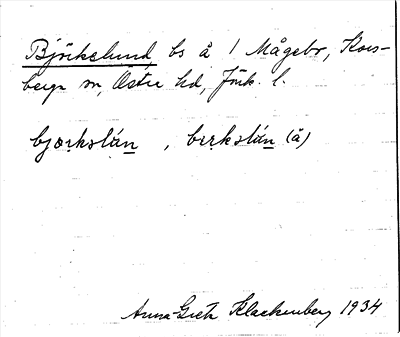 Björkelund bs å 1 Mågebo, Kors-
berga sn, Östra hd, Jönk. l.
bjœrkslún , berkslún (å)
Anna-Greta Klackenberg 1934